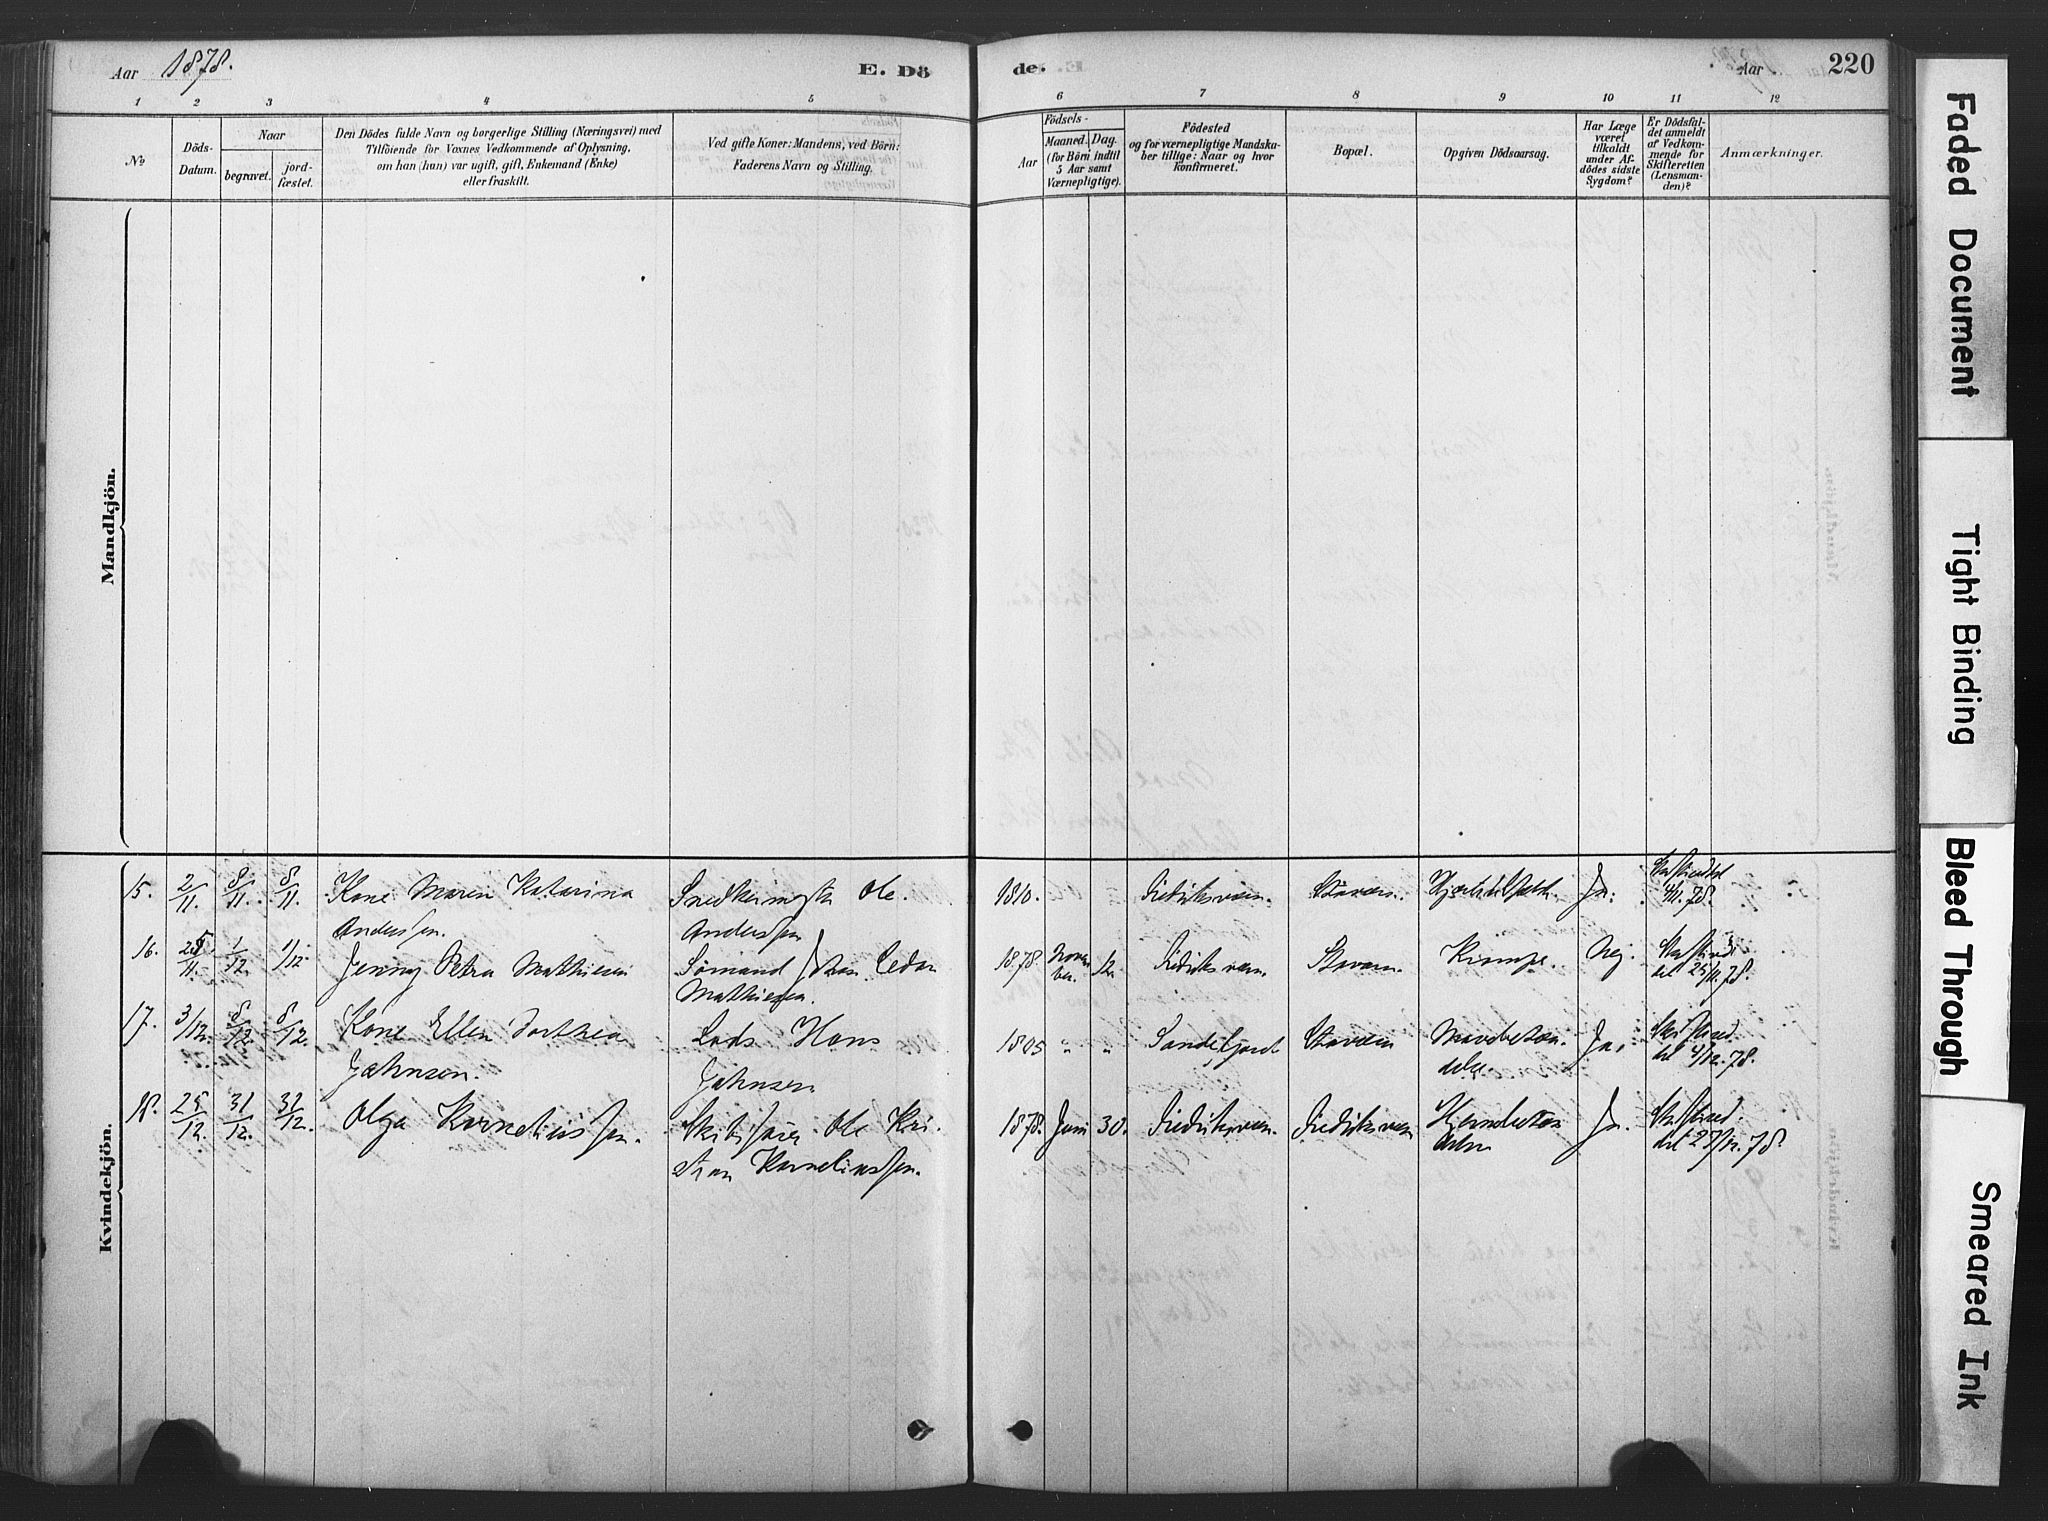 Aar 1878.
E. Dö
de.
Aar
220
1 2 3 4 5 6 7 8 9 10 11 12
No
Döds-
Datum.
Naar
begravet.
jord-
fæstet.
Den Dödes fulde Navn og borgerlige Stilling (Næringsvei) med
Tilföiende for Voxnes Vedkommende af Oplysning,
om han (hun) var ugift, gift, Enkemand (Enke)
eller fraskilt.
Ved gifte Koner: Mandens, ved Börn:
Faderens Navn og Stilling.
Födsels-
Aar
Maaned. Dag.
(for Börn indtil
5 Aar samt
Værnepligtige).
Födested
og for værnepligtige Mandska-
ber tillige: Naar og hvor
konfirmeret.
Bopæl.
Opgiven Dödsaarsag.
Har Læge
været
tilkaldt
under Af-
dödes sidste
Sygdom?
Er Dödsfal-
det anmeldt
af Vedkom-
mende for
Skifteretten
(Lensman-
den)?
Anmærkninger.
Mandkjön.
Kvindekjön.
15. 2/11. 8/11. 8/11. Kone Maren Katarina
Anderssen.
Ole
Anderssen
1810. Fredriksværn. Stavern. Ja.
4/11. 78.
16. 1/12 1/12 Jenny Petra Mathiesen
Sømand Johan
Mathiesen.
1878. Novem
ber. 12. Fredriksværn. Stavern. Krampe. Nej.
25/11. 78.
17. 3/12. 8/12. 8/12. Kone Ellen Dorthea
Jahnsen.
Lods Hans
Jahnsen
1805 " " Sandefjord Stavern Ja.
4/12. 78.
18. 25/12. 31/12. 31/12. Olga Korneliussen.
Ole Kri-
stian Korneliussen.
1878. Juni 30. Fredriksværn. Fredriksværn Ja.
27/12. 78.
Faded Document
Tight Binding
Bleed Through
Smeared Ink